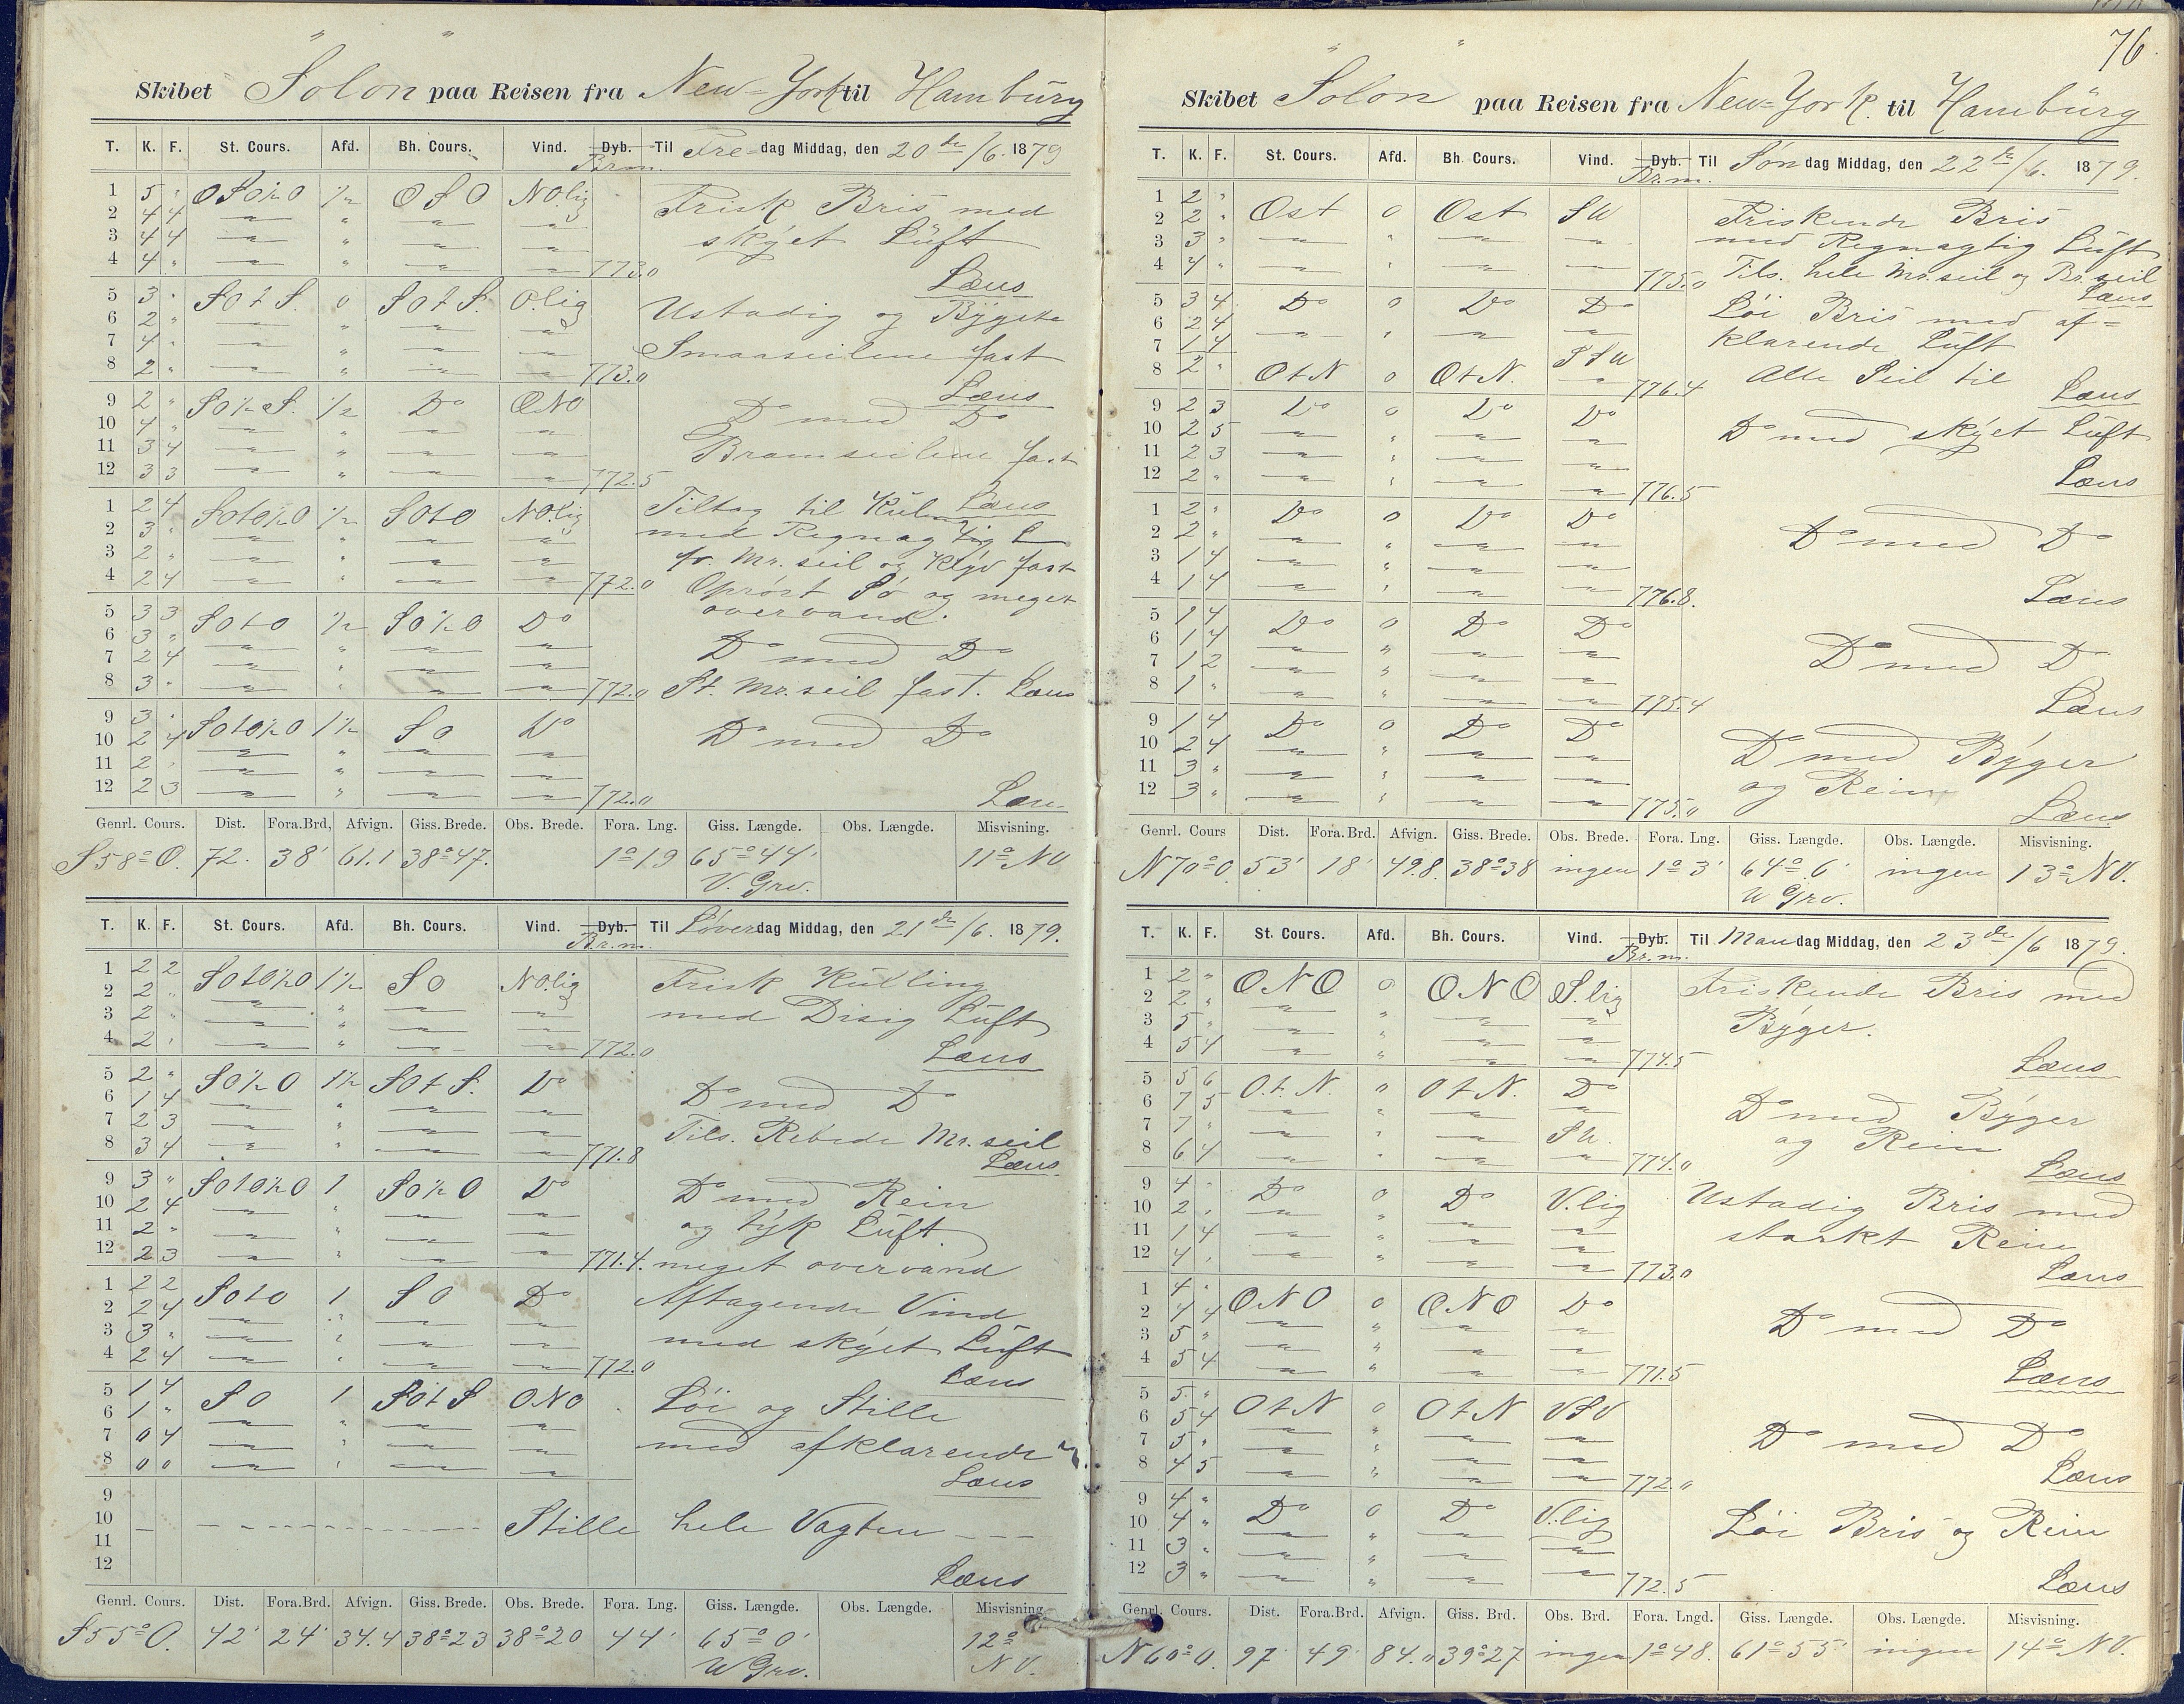 Skibet "Solon" paa Reisen fra New-York til Hamburg
T. K. F. St. Cours. Afd. Bh. Cours. Vind. Dyb. Br.m. Til Fredag Middag, den 20de/6. 1879
1 5 " OSO½O ½ OSO NO.lig Frisk Bris med
2 4 4 " " " "
3 4 4 " " " " skyet Luft
4 4 " " " " " 773.0 Læns
5 3 " SOtS. 0 SOtS. O.lig Ustadig og Bygete
6 2 " " " " "
7 4 " " " " " Smaaseilene fast
8 2 " " " " " 773.0 Læns
9 2 " SO½S. ½ Do ONO Do med Do
10 4 " " " " "
11 3 4 " " " " Bramseilene fast
12 3 3 " " " " 772.5 Læns
1 2 4 SOtO½O ½ SOtO NO.lig Tiltog til Kuling
2 3 " " " " " med Regnagtig L
3 2 " " " " " fr. Mr. seil og Klyv fast
4 2 4 " " " " 772.0 Oprört Sö og meget
overvand.
5 3 3 SOtO ½ SO½O Do
6 3 " " " " " Do med Do
7 2 4 " " " "
8 3 " " " " " 772.0 St. Mr. seil fast. Læns
9 3 " SOtO½O 1½ SO Do Do med Do
10 2 4 " " " "
11 2 " " " " "
12 2 3 " " " " 772.0 Læns
Genrl. Cours. Dist. Fora.Brd, Afvign. Giss. Brede. Obs. Brede. Fora. Lng. Giss. Længde. Obs. Længde. Misvisning.
S58°O. 72. 38' 61.1 38°47. 1°19 65°44' 11° NV
V. Grv.
T. K. F. St. Cours. Afd. Bh. Cours. Vind. Dyb. Br.m. Til Löverdag Middag, den 21de/6. 1879.
1 2 2 SOtO½O 1½ SO NO.lig Frisk Kulling
2 2 " " " " "
3 2 " " " " " med Disig Luft
4 2 " " " " " 772.0 Læns
5 2 " SO½O 1½ SOtS. Do
6 1 4 " " " " Do med Do
7 2 3 " " " " Tils. Rebede Mr. seil
8 3 4 " " " " 771.8 Læns
9 3 " SOtO½O 1 SO½O Do Do med Rein
10 2 4 " " " "
11 2 " " " " " og tyk Luft
12 2 3 " " " " 771.4. meget overvand
1 2 2 SOtO 1 SO Do Aftagende Vind
2 2 4 " " " "
3 3 " " " " " med skyet Luft
4 2 4 " " " " 772.0 Læns
5 1 4 SO 1 SOtS ONO Löi og Stille
6 1 " " " " "
7 0 4 " " " " med afklarende
8 0 0 " " " " Læns
9
10 Stille hele Vagten
11
12 Læns
Genrl. Cours. Dist. Fora.Brd. Afvign. Giss. Brede. Obs. Brede. Fora. Lng. Giss. Længde. Obs. Længde. Misvisning
S55°O. 42' 24' 34.4 38°23 38°20 44' 65°0' 12°
W Grv. NV.
76
Skibet "Solon" paa Reisen fra New-York. til Hamburg
T. K. F. St. Cours. Afd. Bh. Cours. Vind. Dyb. Br.m. Til Söndag Middag, den 22de/6. 1879.
1 2 " Ost 0 Ost SW Friskende Bris
2 2 " " " " "
3 3 " " " " " med Regnagtig Luft
4 4 " " " " " 775.0 Tils. hele Mr.seil og Br.seil
Læns
5 3 4 Do 0 Do Do Löi Bris med af=
6 2 4 " " " "
7 1 4 SSW klarende Luft
8 2 " OtN 0 OtN. " 776.4 Alle Seil til Læns
9 2 3 Do 0 Do Do
10 2 5 " " " " Do med skyet Luft
11 2 3 " " " "
12 2 " " " " " 776.5 Læns
1 2 " Do 0 Do Do
2 2 " " " " " Do med Do
3 1 4 " " " "
4 1 4 " " " " 776.8. Læns
5 1 4 Do 0 Do Do
6 1 4 " " " " Do med Do
7 1 2 " " " "
8 1 " " " " " 775.4 Læns
9 1 4 Do 0 Do Do
10 2 4 " " " " Do med Byger
11 3 " " " " " og Rein
12 3 " " " " " 775.0 Læns
Genrl. Cours Dist. Fora.Brd. Afvign. Giss. Brede. Obs. Brede. Fora. Lng. Giss. Længde. Obs. Længde. Misvisning.
N70°O. 53' 18' 49.8. 38°38 ingen 1°3' 64°.6' ingen 13° NV.
W Grv.
T. K. F. St. Cours. Afd. Bh. Cours. Vind. Dyb. Br.m. Til Mandag Middag, den 23de/6 1879.
1 2 " ONO 0 ONO S.lig Friskende Bris med
2 2 " " " " "
3 5 " " " " " Byger.
4 5 4 " " " " 774.5 Læns
5 5 6 O.t.N. 0 OtN. Do
6 7 5 " " " " Do med Byger
7 7 " " " " SW. og Rein
8 6 4 " " " " 774.0 Læns
9 4 " Do 0 Do V.lig Ustadig Bris med
10 2 " " " " "
11 1 4 " " " " starkt Rein
12 4 " " " " " 773.0 Læns
1 4 " ONO 0 ONO Do
2 4 4 " " " " Do med Do
3 5 " " " " "
4 5 4 " " " " 771.5 Læns
5 5 " OtN 0 OtN VSV
6 5 4 " " " " Do med Do
7 5 " " " " "
8 4 5 " " " " 772.0 Læns
9 4 " Do 0 Do V.lig
10 4 " " " " " Löi Bris og Rein
11 3 " " " " "
12 3 " " " " " 772.5 Læns
Genrl. Cours. Dist. Fora.Brd. Afvign. Giss. Brd. Obs. Brd. Fora. Lngd. Giss. Længde. Obs. Længde. Misvisning.
N60°O. 97' 49' 84.0 39°27 ingen 1°48. 61°55' ingen 14° NV.